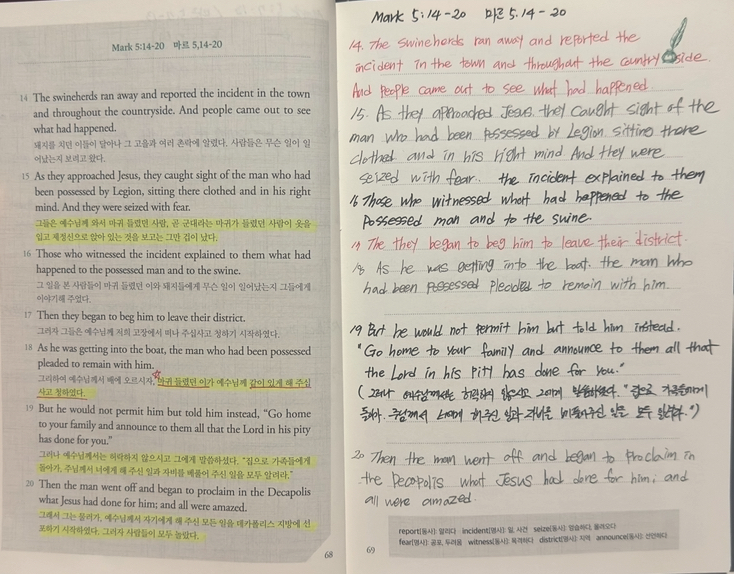 Mark 5:14-20 마르 5,14-20
14 The swineherds ran away and reported the incident in the town
and throughout the countryside. And people came out to see
what had happened.
돼지를 치던 이들이 달아나 그 고을과 여러 촌락에 알렸다. 사람들은 무슨 일이 일
어났는지 보려고 왔다.
15 As they approached Jesus, they caught sight of the man who had
been possessed by Legion, sitting there clothed and in his right
mind. And they were seized with fear.
그들은 예수님께 와서 마귀 들렸던 사람, 곧 군대라는 마귀가 들렸던 사람이 옷을
입고 제정신으로 앉아 있는 것을 보고는 그만 겁이 났다.
16 Those who witnessed the incident explained to them what had
happened to the possessed man and to the swine.
그 일을 본 사람들이 마귀 들렸던 이와 돼지들에게 무슨 일이 일어났는지 그들에게
이야기해 주었다.
17 Then they began to beg him to leave their district.
그러자 그들은 예수님께 저희 고장에서 떠나 주십사고 청하기 시작하였다.
18 As he was getting into the boat, the man who had been possessed
pleaded to remain with him.
그리하여 예수님께서 배에 오르시자, 마귀 들렸던 이가 예수님께 같이 있게 해 주십
사고 청하였다.
19 But he would not permit him but told him instead, “Go home
to your family and announce to them all that the Lord in his pity
has done for you.”
그러나 예수님께서는 허락하지 않으시고 그에게 말씀하셨다. “집으로 가족들에게
돌아가, 주님께서 너에게 해 주신 일과 자비를 베풀어 주신 일을 모두 알려라.”
20 Then the man went off and began to proclaim in the Decapolis
what Jesus had done for him; and all were amazed.
그래서 그는 물러가, 예수님께서 자기에게 해 주신 모든 일을 데카폴리스 지방에 선
포하기 시작하였다. 그러자 사람들이 모두 놀랐다.
68
Mark 5:14-20 마르 5.14-20
14. The swineherds ran away and reported the
incident in the town and throughout the country side.
And people came out to see what had happened.
15. As they approached Jesus. they caught sight of the
man who had been possessed by Legion sitting there
clothed and in his right mind And they were
seized with fear. the incident explained to them
16 Those who witnessed what had happened to the
possessed man and to the swine.
17 The they began to beg him to leave their district.
18. As he was getting into the boat. the man who
had been possessed pleaded to remain with him.
19 But he would not permit him but told him instead.
"Go home to your family and announce to them all that
the Lord in his pity has done for you."
(그러나 예수님께서는 허락하지 않으시고 그에게 말씀하셨다. "집으로 가족들에게
돌아가. 주님께서 너에게 해주신 일과 자비를 베풀어주신 일을 모두 알려라.")
20 Then the man went off and began to proclaim in
the Decapolis what Jesus had done for him; and
all were amazed.
report(동사): 알리다 incident(명사): 일, 사건 seize(동사): 엄습하다, 몰려오다
fear(명사): 공포, 두려움 witness(동사): 목격하다 district(명사): 지역 announce(동사): 선언하다
69